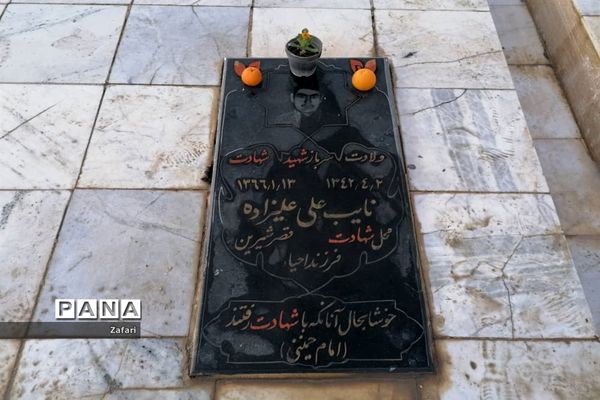 ولادت باز شهید شهادت
۱۳۴۲,۴,۲ ۱۳۶۶,۱,۱۳
نایب علی علیزاده
محل شهادت قصر شیرین
فرزند احیا
خوشا بحال آنانکه با شهادت رفتند
(امام خمینی)
PANA
Zafari